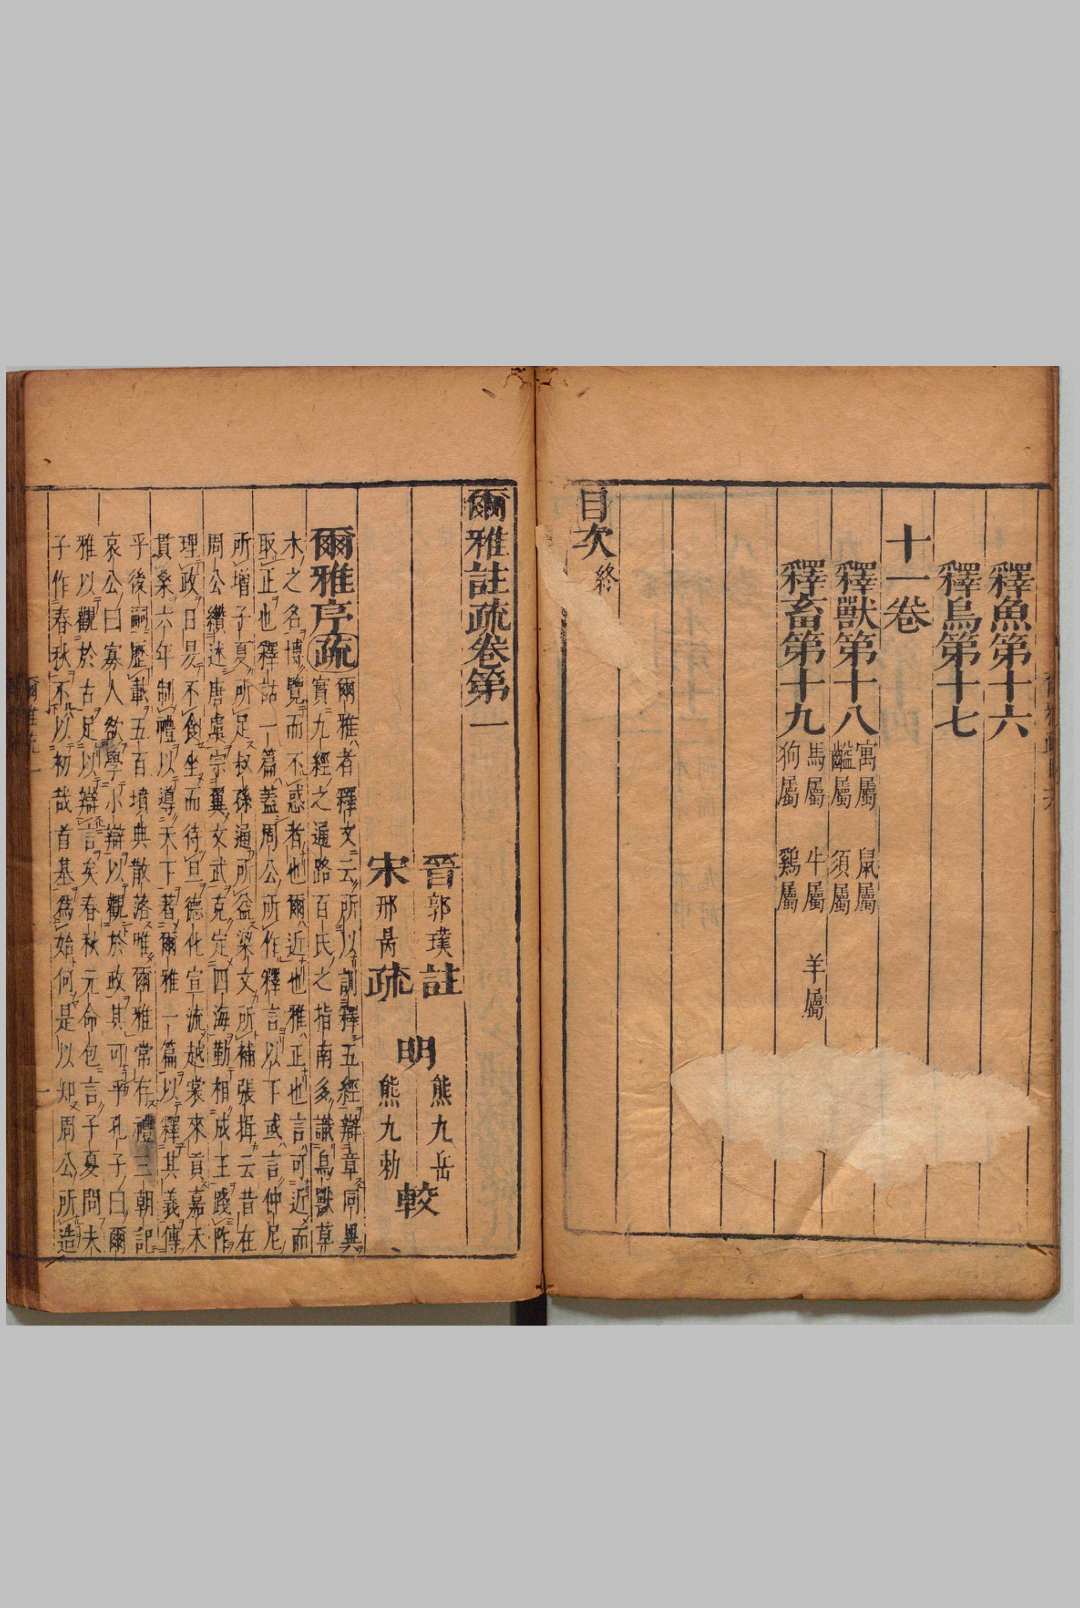 釋魚第十六
釋鳥第十七
十一卷
釋獸第十八 寓屬 鼠屬
齸屬 須屬
釋畜第十九 馬屬 牛屬 羊屬
狗屬 鷄屬
目次終
爾雅註疏卷第一
晉郭璞註 明熊九岳
宋邢昺疏 熊九勅較
爾雅序疏 爾雅者釋文云所以訓釋五經辯章同異
實九經之通路百氏之指南多識鳥獸草
木之名博覽而不惑者也爾近也雅正也言可近而
取正也釋詁一篇蓋周公所作釋言以下或言仲尼
所增子夏所足叔孫通所益梁文所補張揖云昔在
周公纘述唐虞宗翼文武克定四海勤相成王踐阼
理政日昃不食坐而待旦德化宣流越裳來貢嘉禾
貫桑六年制禮以導天下著爾雅一篇以釋其義傳
乎後嗣歷載五百墳典散落唯爾雅常存禮三朝記
哀公曰寡人欲學小辯以觀於政其可乎孔子曰爾
雅以觀於古足以辯言矣春秋元命包言子夏問夫
子作春秋不以初哉首基為始何是以知周公所造